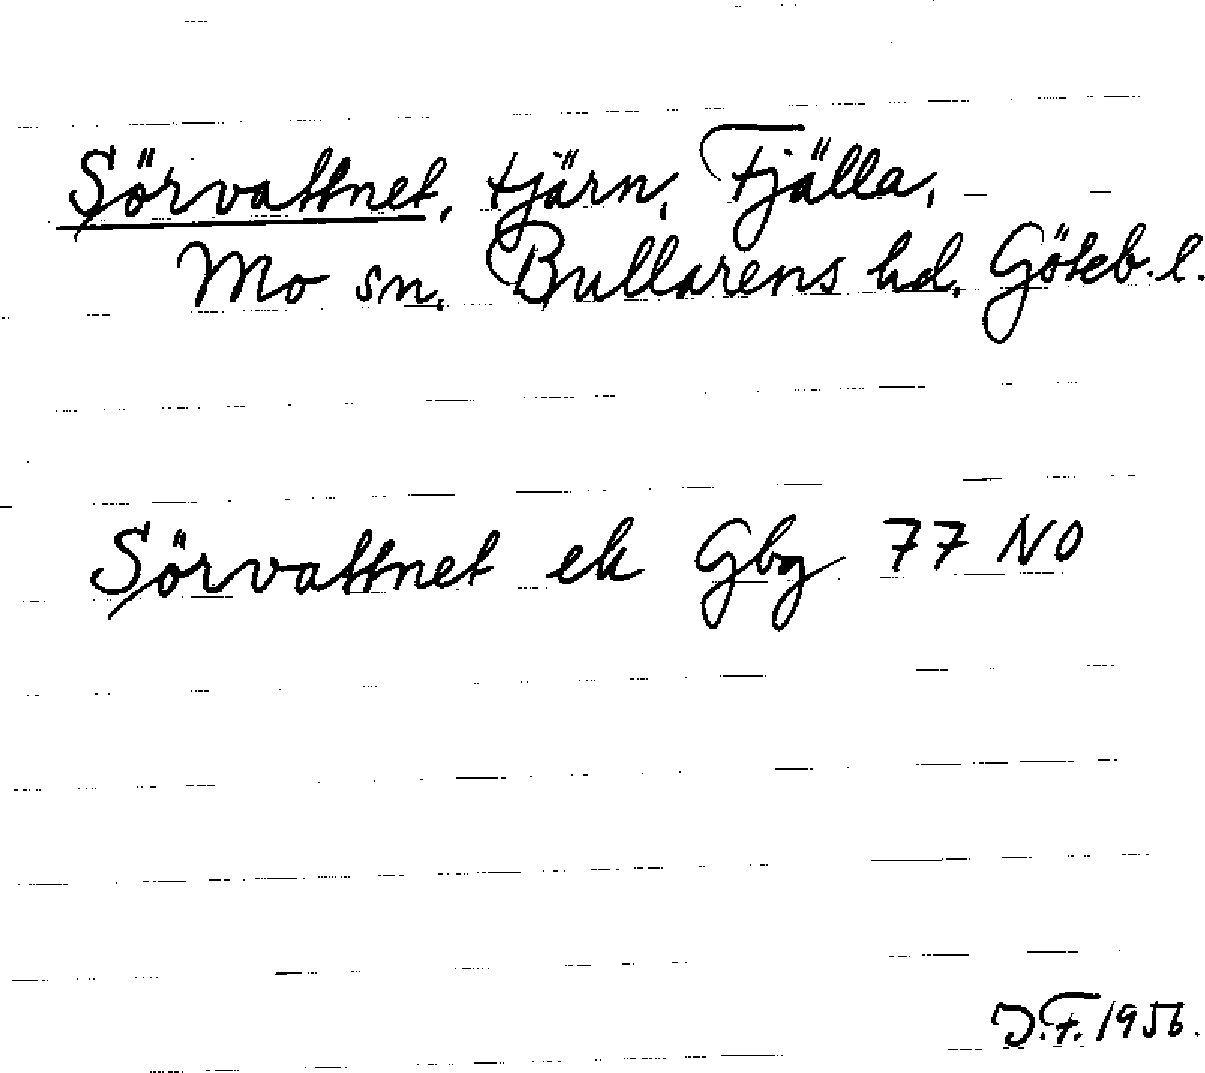 Sörvattnet, tjärn, Fjälla,
Mo sn. Bullarens hd. Göteb. l.
Sörvattnet ek Gbg 77 NO
J.F. 1956.